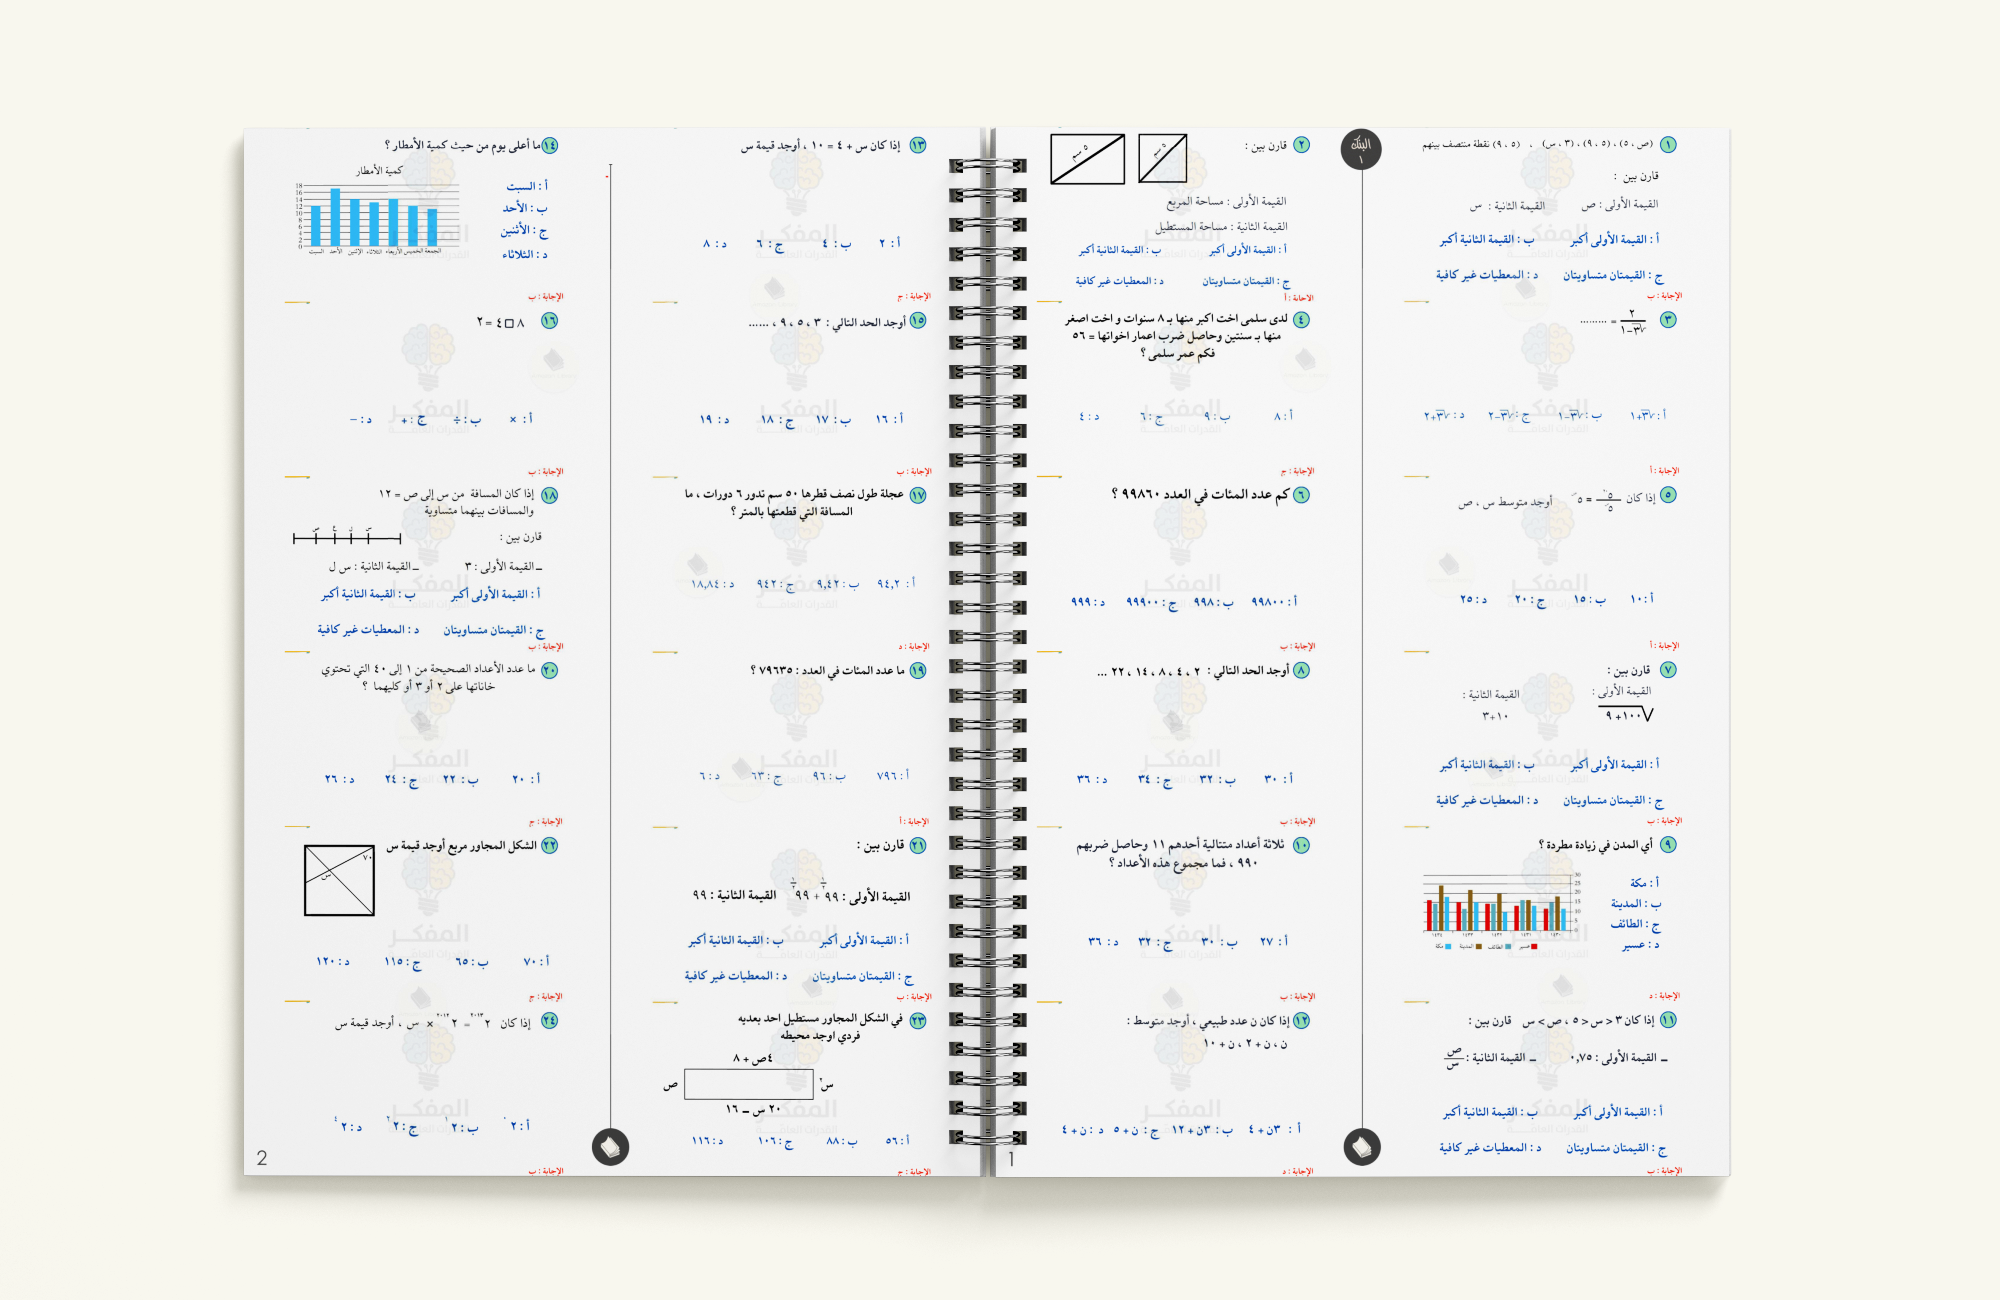 البنك
١
١ (ص ، ٥) ، (٥ ، ٩) ، (٣ ، س) ، (٥ ، ٩) نقطة منتصف بينهم
قارن بين :
القيمة الأولى : ص القيمة الثانية : س
أ : القيمة الأولى أكبر ب : القيمة الثانية أكبر
ج : القيمتان متساويتان د : المعطيات غير كافية
الإجابة : ب
٢ قارن بين :
٥ سم
٥ سم
القيمة الأولى : مساحة المربع
القيمة الثانية : مساحة المستطيل
أ : القيمة الأولى أكبر ب : القيمة الثانية أكبر
ج : القيمتان متساويتان د : المعطيات غير كافية
الاجابة : أ
٣ ٢ / √٣−١ = .........
أ : √٣+١ ب : √٣−١ ج : √٣−٢ د : √٣+٢
الإجابة : أ
٤ لدى سلمى اخت اكبر منها بـ ٨ سنوات و اخت اصغر
منها بـ سنتين وحاصل ضرب اعمار اخواتها = ٥٦
فكم عمر سلمى ؟
أ : ٨ ب : ٩ ج : ٦ د : ٤
الإجابة : ج
٥ إذا كان أوجد متوسط س ، ص
أ : ١٠ ب : ١٥ ج : ٢٠ د : ٢٥
الإجابة : أ
٦ كم عدد المئات في العدد ٩٩٨٦٠ ؟
أ : ٩٩٨٠٠ ب : ٩٩٨ ج : ٩٩٩٠٠ د : ٩٩٩
الإجابة : ب
٧ قارن بين :
القيمة الأولى : القيمة الثانية :
√١٠٠ + ٩ ١٠+٣
أ : القيمة الأولى أكبر ب : القيمة الثانية أكبر
ج : القيمتان متساويتان د : المعطيات غير كافية
الإجابة : ب
٨ أوجد الحد التالي : ٢ ، ٤ ، ٨ ، ١٤ ، ٢٢ ...
أ : ٣٠ ب : ٣٢ ج : ٣٤ د : ٣٦
الإجابة : ب
٩ أي المدن في زيادة مطردة ؟
أ : مكة
ب : المدينة
ج : الطائف
د : عسير
30
25
20
15
10
5
0
١٤٣٤ ١٤٣٣ ١٤٣٢ ١٤٣١ ١٤٣٠
عسير الطائف المدينة مكة
الإجابة : د
١٠ ثلاثة أعداد متتالية أحدهم ١١ وحاصل ضربهم
٩٩٠ ، فما مجموع هذه الأعداد ؟
أ : ٢٧ ب : ٣٠ ج : ٣٢ د : ٣٦
الإجابة : ب
١١ إذا كان ٣ < س < ٥ ، ص > س قارن بين :
ــ القيمة الأولى : ٠,٧٥ ــ القيمة الثانية : ص / س
أ : القيمة الأولى أكبر ب : القيمة الثانية أكبر
ج : القيمتان متساويتان د : المعطيات غير كافية
الإجابة : ب
١٢ إذا كان ن عدد طبيعي ، أوجد متوسط :
ن ، ن + ٢ ، ن + ١٠
أ : ٣ن + ٤ ب : ٣ن + ١٢ ج : ن + ٥ د : ن + ٤
الإجابة : د
1
١٣ إذا كان س + ٤ = ١٠ ، أوجد قيمة س
أ : ٢ ب : ٤ ج : ٦ د : ٨
الإجابة : ج
١٤ ما أعلى يوم من حيث كمية الأمطار ؟
كمية الأمطار
18
16
14
12
10
8
6
4
2
0
السبت الأحد الإثنين الثلاثاء الأربعاء الخميس الجمعة
أ : السبت
ب : الأحد
ج : الأثنين
د : الثلاثاء
الإجابة : ب
١٥ أوجد الحد التالي : ٣ ، ٥ ، ٩ ، ......
أ : ١٦ ب : ١٧ ج : ١٨ د : ١٩
الإجابة : ب
١٦ ٨ □ ٤ = ٢
أ : × ب : ÷ ج : + د : −
الإجابة : ب
١٧ عجلة طول نصف قطرها ٥٠ سم تدور ٦ دورات ، ما
المسافة التي قطعتها بالمتر ؟
أ : ٩٤,٢ ب : ٩,٤٢ ج : ٩٤٢ د : ١٨,٨٤
الإجابة : د
١٨ إذا كان المسافة من س إلى ص = ١٢
والمسافات بينهما متساوية
قارن بين :
ــ القيمة الأولى : ٣ ــ القيمة الثانية : س ل
أ : القيمة الأولى أكبر ب : القيمة الثانية أكبر
ج : القيمتان متساويتان د : المعطيات غير كافية
الإجابة : ب
١٩ ما عدد المئات في العدد : ٧٩٦٣٥ ؟
أ : ٧٩٦ ب : ٩٦ ج : ٦٣ د : ٦
الإجابة : أ
٢٠ ما عدد الأعداد الصحيحة من ١ إلى ٤٠ التي تحتوي
خاناتها على ٢ أو ٣ أو كليهما ؟
أ : ٢٠ ب : ٢٢ ج : ٢٤ د : ٢٦
الإجابة : ج
٢١ قارن بين :
القيمة الأولى : ٩٩ + ٩٩ القيمة الثانية : ٩٩
أ : القيمة الأولى أكبر ب : القيمة الثانية أكبر
ج : القيمتان متساويتان د : المعطيات غير كافية
الإجابة : ب
٢٢ الشكل المجاور مربع أوجد قيمة س
٧٠
س
أ : ٧٠ ب : ٦٥ ج : ١١٥ د : ١٢٠
الإجابة : ج
٢٣ في الشكل المجاور مستطيل احد بعديه
فردي اوجد محيطه
٤ص + ٨
س٢
ص
٢٠ س ــ ١٦
أ : ٥٦ ب : ٨٨ ج : ١٠٦ د : ١١٦
الإجابة : ج
٢٤ إذا كان ٢^٢٠١٣ = ٢^٢٠١٢ × س ، أوجد قيمة س
أ : ٢ ب : ٢ ج : ٢ د : ٢
الإجابة : ب
2
المفكـر
القدرات العامـة